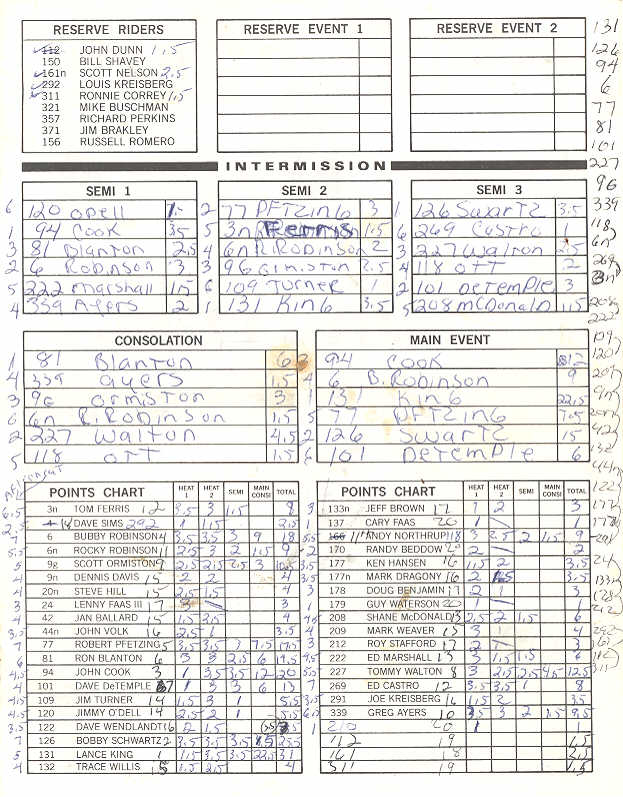 RESERVE RIDERS
112 JOHN DUNN 1.5
150 BILL SHAVEY
161n SCOTT NELSON 2.5
292 LOUIS KREISBERG
311 RONNIE CORREY 1.5
321 MIKE BUSCHMAN
357 RICHARD PERKINS
371 JIM BRAKLEY
156 RUSSELL ROMERO
RESERVE EVENT 1
RESERVE EVENT 2
131
126
94
6
77
81
101
227
96
339
118
6n
269
INTERMISSION
SEMI 1
6 120 Opell
94 Cook 3.5
3 81 Blanton 2.5
2 6 Robinson 3
5 222 Marshall 1.5
4 339 Ayers 2
SEMI 2
2 77 PFTzing 3
5 3n Ferris 1.5
4 6n R. Robinson 2
3 96 Ormiston 2.5
6 109 Turner 1
1 131 King 3.5
SEMI 3
1 126 Swartz 3.5
6 269 Castro 1
3 227 Walton 2.5
4 118 OTT 2
2 101 DeTemple 3
5 208 McDonald 1.5
CONSOLATION
1 81 Blanton 6
4 339 ayers 1.5
3 96 ormiston 3
6 6n R. Robinson 1.5
2 227 Walton 4.5
5 118 OTT 1.5
MAIN EVENT
3 94 Cook 12
4 6 B. Robinson 9
1 131 King 22.5
5 77 PFTzing 7.5
2 126 Swartz 15
6 101 DeTemple 6
POINTS CHART HEAT 1 HEAT 2 SEMI MAIN CONSI TOTAL
3n TOM FERRIS 12 3.5 3 1.5 8
14 DAVE SIMS 292 1 1.5 2.5
6 BUBBY ROBINSON 4 3.5 3.5 3 9 18
6n ROCKY ROBINSON 11 2.5 3 2 1.5 9
9g SCOTT ORMISTON 9 2.5 2.5 2.5 3 10.5
9n DENNIS DAVIS 15 2 2 4
20n STEVE HILL 15 2.5 1.5 4
24 LENNY FAAS III 17 3 3
42 JAN BALLARD 15 1.5 2.5 4
44n JOHN VOLK 16 2.5 1 3.5
77 ROBERT PFETZING 5 3.5 3.5 3 7.5 17.5
81 RON BLANTON 6 3 3 2.5 6 14.5
94 JOHN COOK 3 1 3.5 3.5 12 20
101 DAVE DeTEMPLE 7 1 3 3 6 13
109 JIM TURNER 14 1.5 3 1 5.5
120 JIMMY O'DELL 14 2.5 2 1 5.5
122 DAVE WENDLANDT 16 2 1.5 3.5
126 BOBBY SCHWARTZ 2 3.5 3.5 3.5 15 25.5
131 LANCE KING 1 1.5 3.5 3.5 22.5 31
132 TRACE WILLIS 15 1.5 2.5 4
POINTS CHART HEAT 1 HEAT 2 SEMI MAIN CONSI TOTAL
133n JEFF BROWN 17 1 2 3
137 CARY FAAS 20 1 1
166 118 ANDY NORTHRUP 3 2.5 2 1.5 9
170 RANDY BEDDOW 20 2 2
177 KEN HANSEN 16 1.5 2 3.5
177n MARK DRAGONY 16 2 1.5 3.5
178 DOUG BENJAMIN 17 1 2 3
179 GUY WATERSON 20 1 1
208 SHANE McDONALD 13 2.5 2 1.5 6
209 MARK WEAVER 15 3 1 4
212 ROY STAFFORD 17 2 1 3
222 ED MARSHALL 13 3 1.5 1.5 6
227 TOMMY WALTON 8 3 2.5 2.5 4.5 12.5
269 ED CASTRO 12 3.5 3.5 1 8
291 JOE KREISBERG 16 1.5 2 3.5
339 GREG AYERS 10 2.5 3 2 1.5 9.5
210 20 1 1
112 19 1.5
161 18 2.5
311 19 1.5